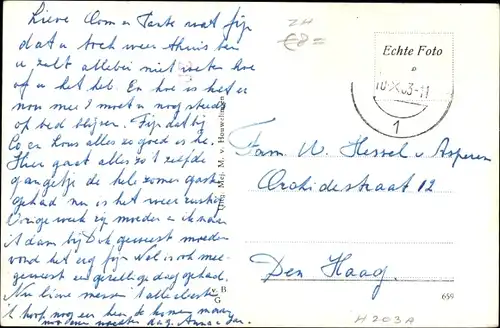 Lieve Oom en Tante wat fijn
dat u toch weer thuis bent
u zult allebei niet weten hoe
of u het heb. En hoe is het er
nou mee? moet u nog steeds
op bed blijven. Fijn dat bij
Co en Hans alles zo goed is he.
Hier gaat alles zo 't zelfde
gangetje de hele zomer gasten
gehad nu is het weer rustig
Vorige week zij moeder
dam bij geweest moeder
vond het erg fijn Wel is ook mee
geweest en gezellige dag gehad.
Nu lieve mensen 't allerbeste
'k hoop nog een keer te komen
moeder dag. Anna
Uitg. Mej. M. v. Houwelingen
v. B
G
ZH
€8=
Echte Foto
10.X.63-11
1
Fam. W. Hessel v. Asperen
Orchideestraat 12
Den Haag.
659
H203A